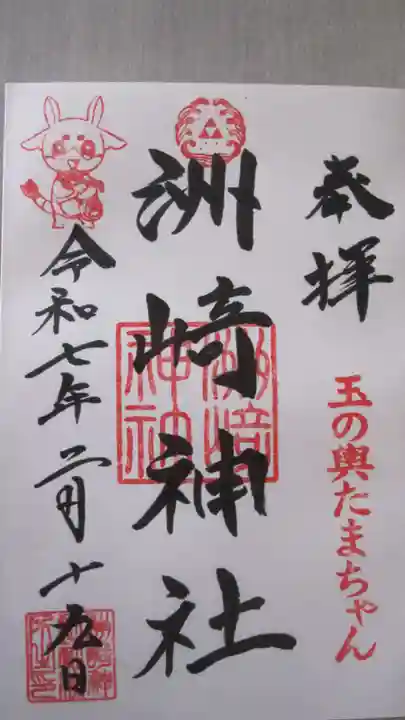 奉拝
玉の輿たまちゃん
洲崎神社
洲崎神社
令和七年二月十九日